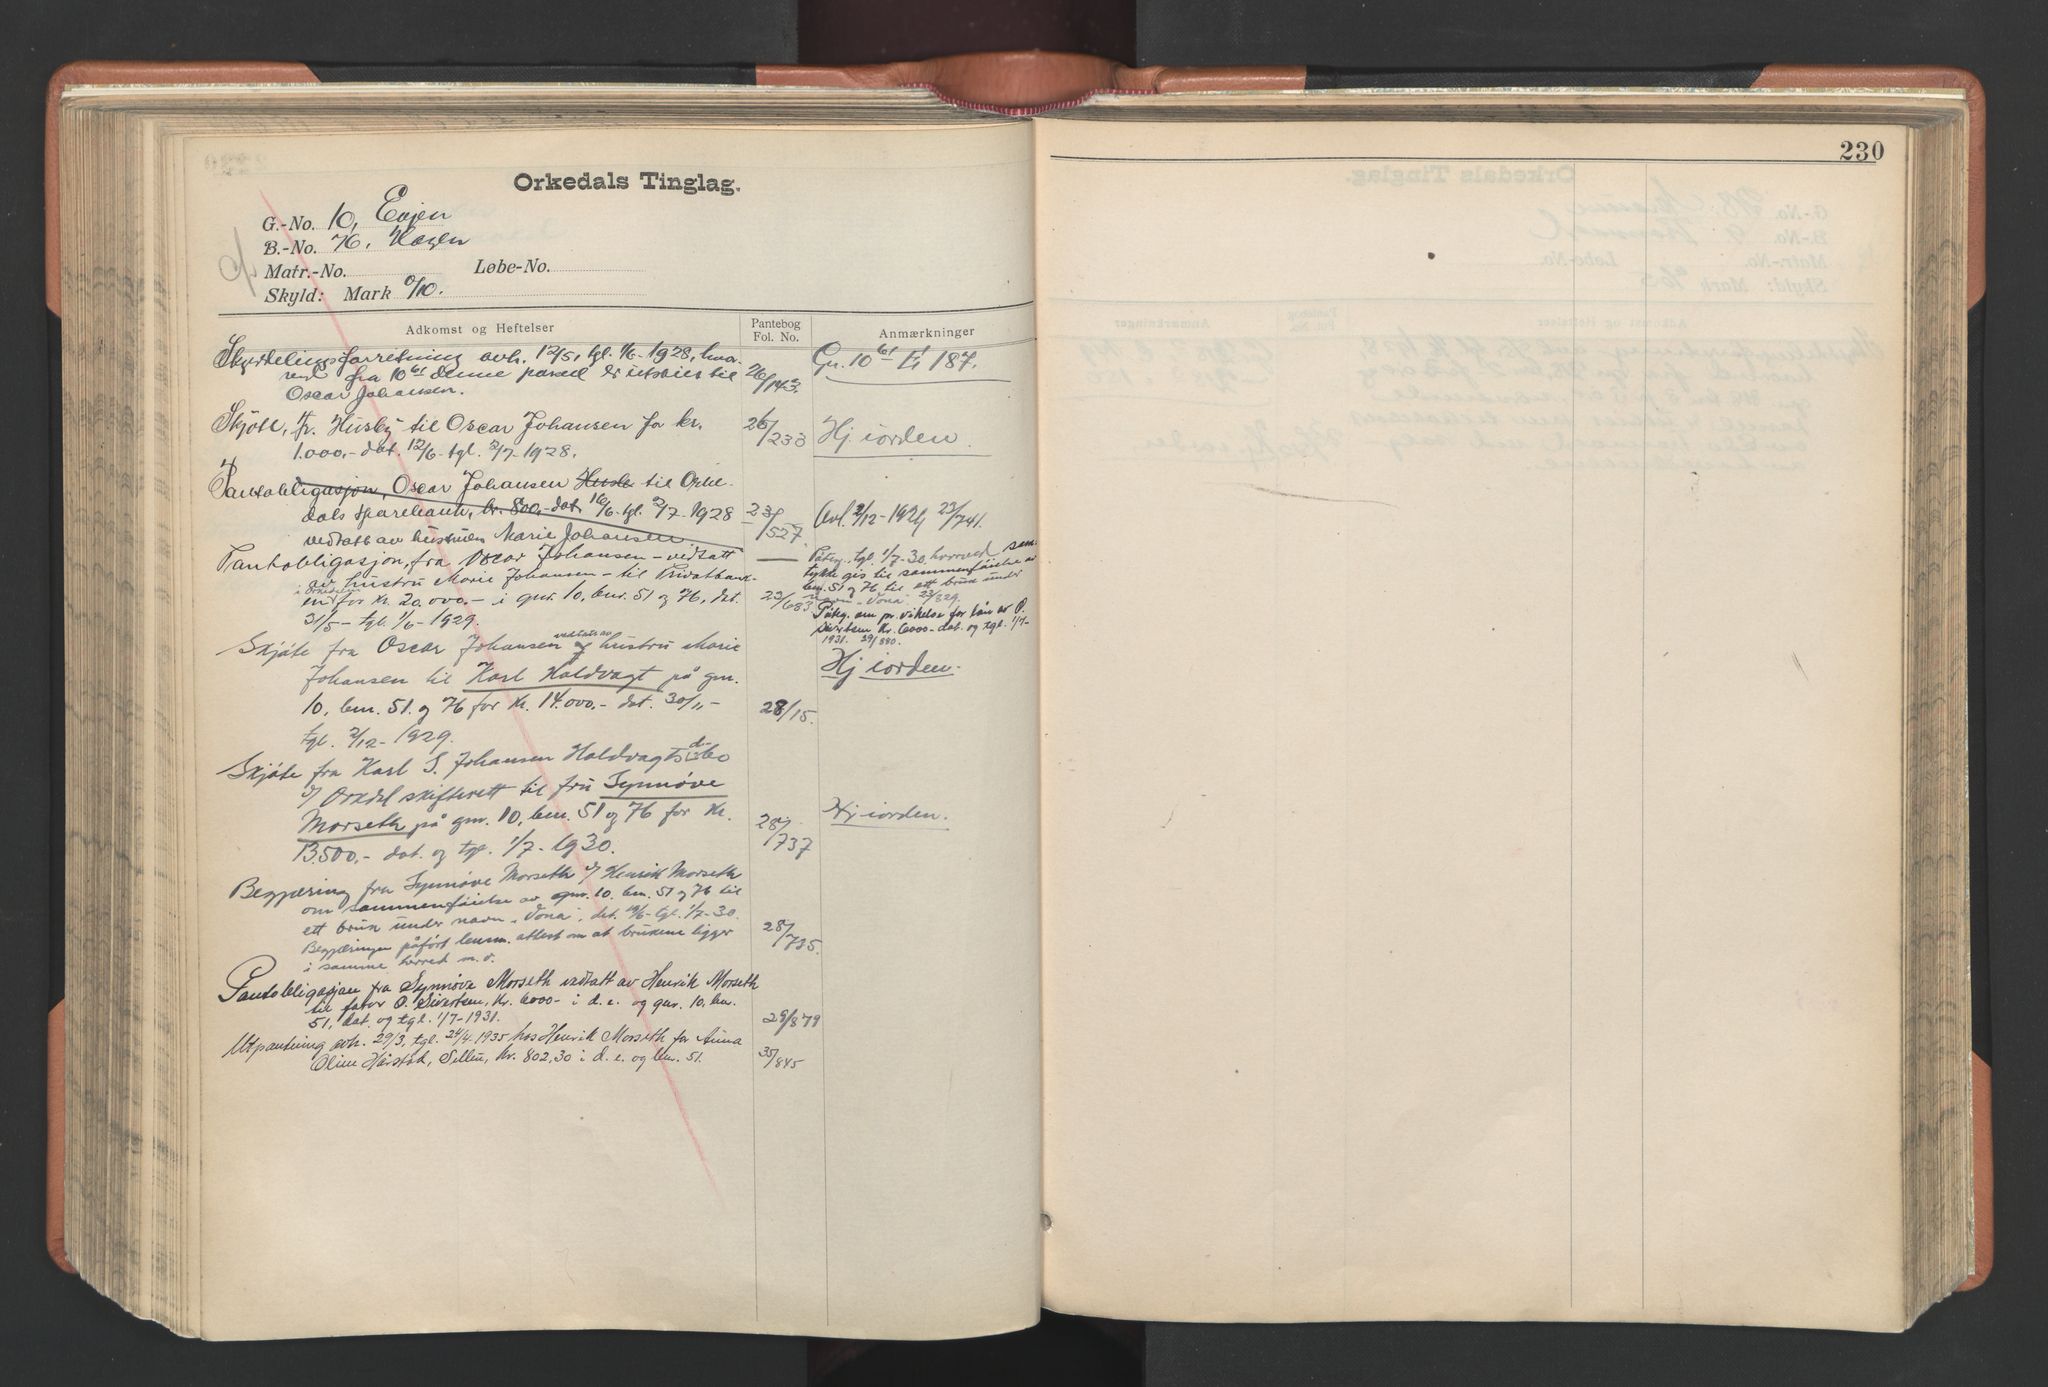 230
Orkedals Tinglag.
G.-No. 10, Evjen
B.-No. 76, Hagen
Matr.-No. Løbe-No.
Skyld: Mark 0/10.
Adkomst og Heftelser Pantebog Fol. No. Anmærkninger
Skyldelingsforretning avh. 12/5, tgl. 1/6-1928, hvor-
ved fra 10/61 denne parsel er utskilt til 26/143. Gn. 10/61 II 187.
Oscar Johansen.
Skjöte, fr. Husby til Oscar Johansen for kr. 26/233 Hj iorden.
1.000,- dat. 12/6- tgl. 2/7-1928.
Pantobligasjon, Oscar Johansen Husb til Orke-
dals sparebank, kr. 800,- dat. 16/6- tgl. 2/7-1928 23/527 Avl. 2/12-1929 23/741.
vedtatt av hustruen Marie Johansen
Pantobligasjon, fra Oscar Johansen - vedtatt
av hustru Marie Johansen - til Privatbank-
en i Orkedalen for kr. 20.000.- i gnr. 10, bnr. 51 og 76, dat. 23/683
31/5 - tgl. 1/6-1929.
Påteg. tgl. 1/7-30, hvorved sam-
tykke gis til sammenføielse av
bnr. 51 og 76 til ett bruk under
navn "Vona" 23/829.
Påteg. om pr. vikelse for lån av O.
Sivertsen kr. 6000- dat. og tgl. 1/7-
1931. 29/880.
Skjøte fra Oscar Johansen vedtatt av hustru Marie
Johansen til Karl Haldvagt på gnr. Hj iorden.
10, bnr. 51 og 76 for kr. 14.000.- dat. 30/11- 28/15.
tgl. 2/12-1929.
Skjøte fra Karl S. Johansen Haldvagts d.bo
v/ Orkdal skifterett til fru Synnøve
Morseth på gnr. 10, bnr. 51 og 76 for kr. 28/737 Hj iorden.
13500.- dat. og tgl. 1/7-1930.
Begjæring fra Synnøve Morseth v/ Henrik Morseth
om sammenføielse av gnr. 10. bnr. 51 og 76 til
ett bruk under navn "Vona", dat. 19/6- tgl. 1/7-30. 28/735.
Begjæringen påført lensm. attest om at brukene ligger
i samme herred m.v.
Pantobligasjon fra Synnøve Morseth vedtatt av Henrik Morseth
til fatvr O. Sivertsen, kr. 6000- i d. e. og gnr. 10, bnr.
51, dat. og tgl. 1/7-1931. 29/879
Utpantning avh. 29/3, tgl. 24/4-1935 hos Henrik Morseth for Anna
Oline Harstad, kr. 802,30 i d. e. og bnr. 51. 35/845